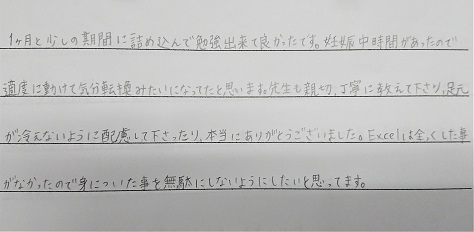 1ヶ月と少しの期間に詰め込んで勉強出来て良かったです。妊娠中時間があったので
適度に動けて気分転換みたいになってたと思います。先生も親切、丁寧に教えて下さり、足元
が冷えないように配慮して下さったり、本当にありがとうございました。Excelは全くした事
がなかったので身についた事を無駄にしないようにしたいと思ってます。